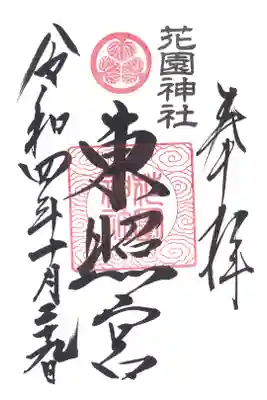 奉拝
花園神社
東照宮
令和四年十月二十九日